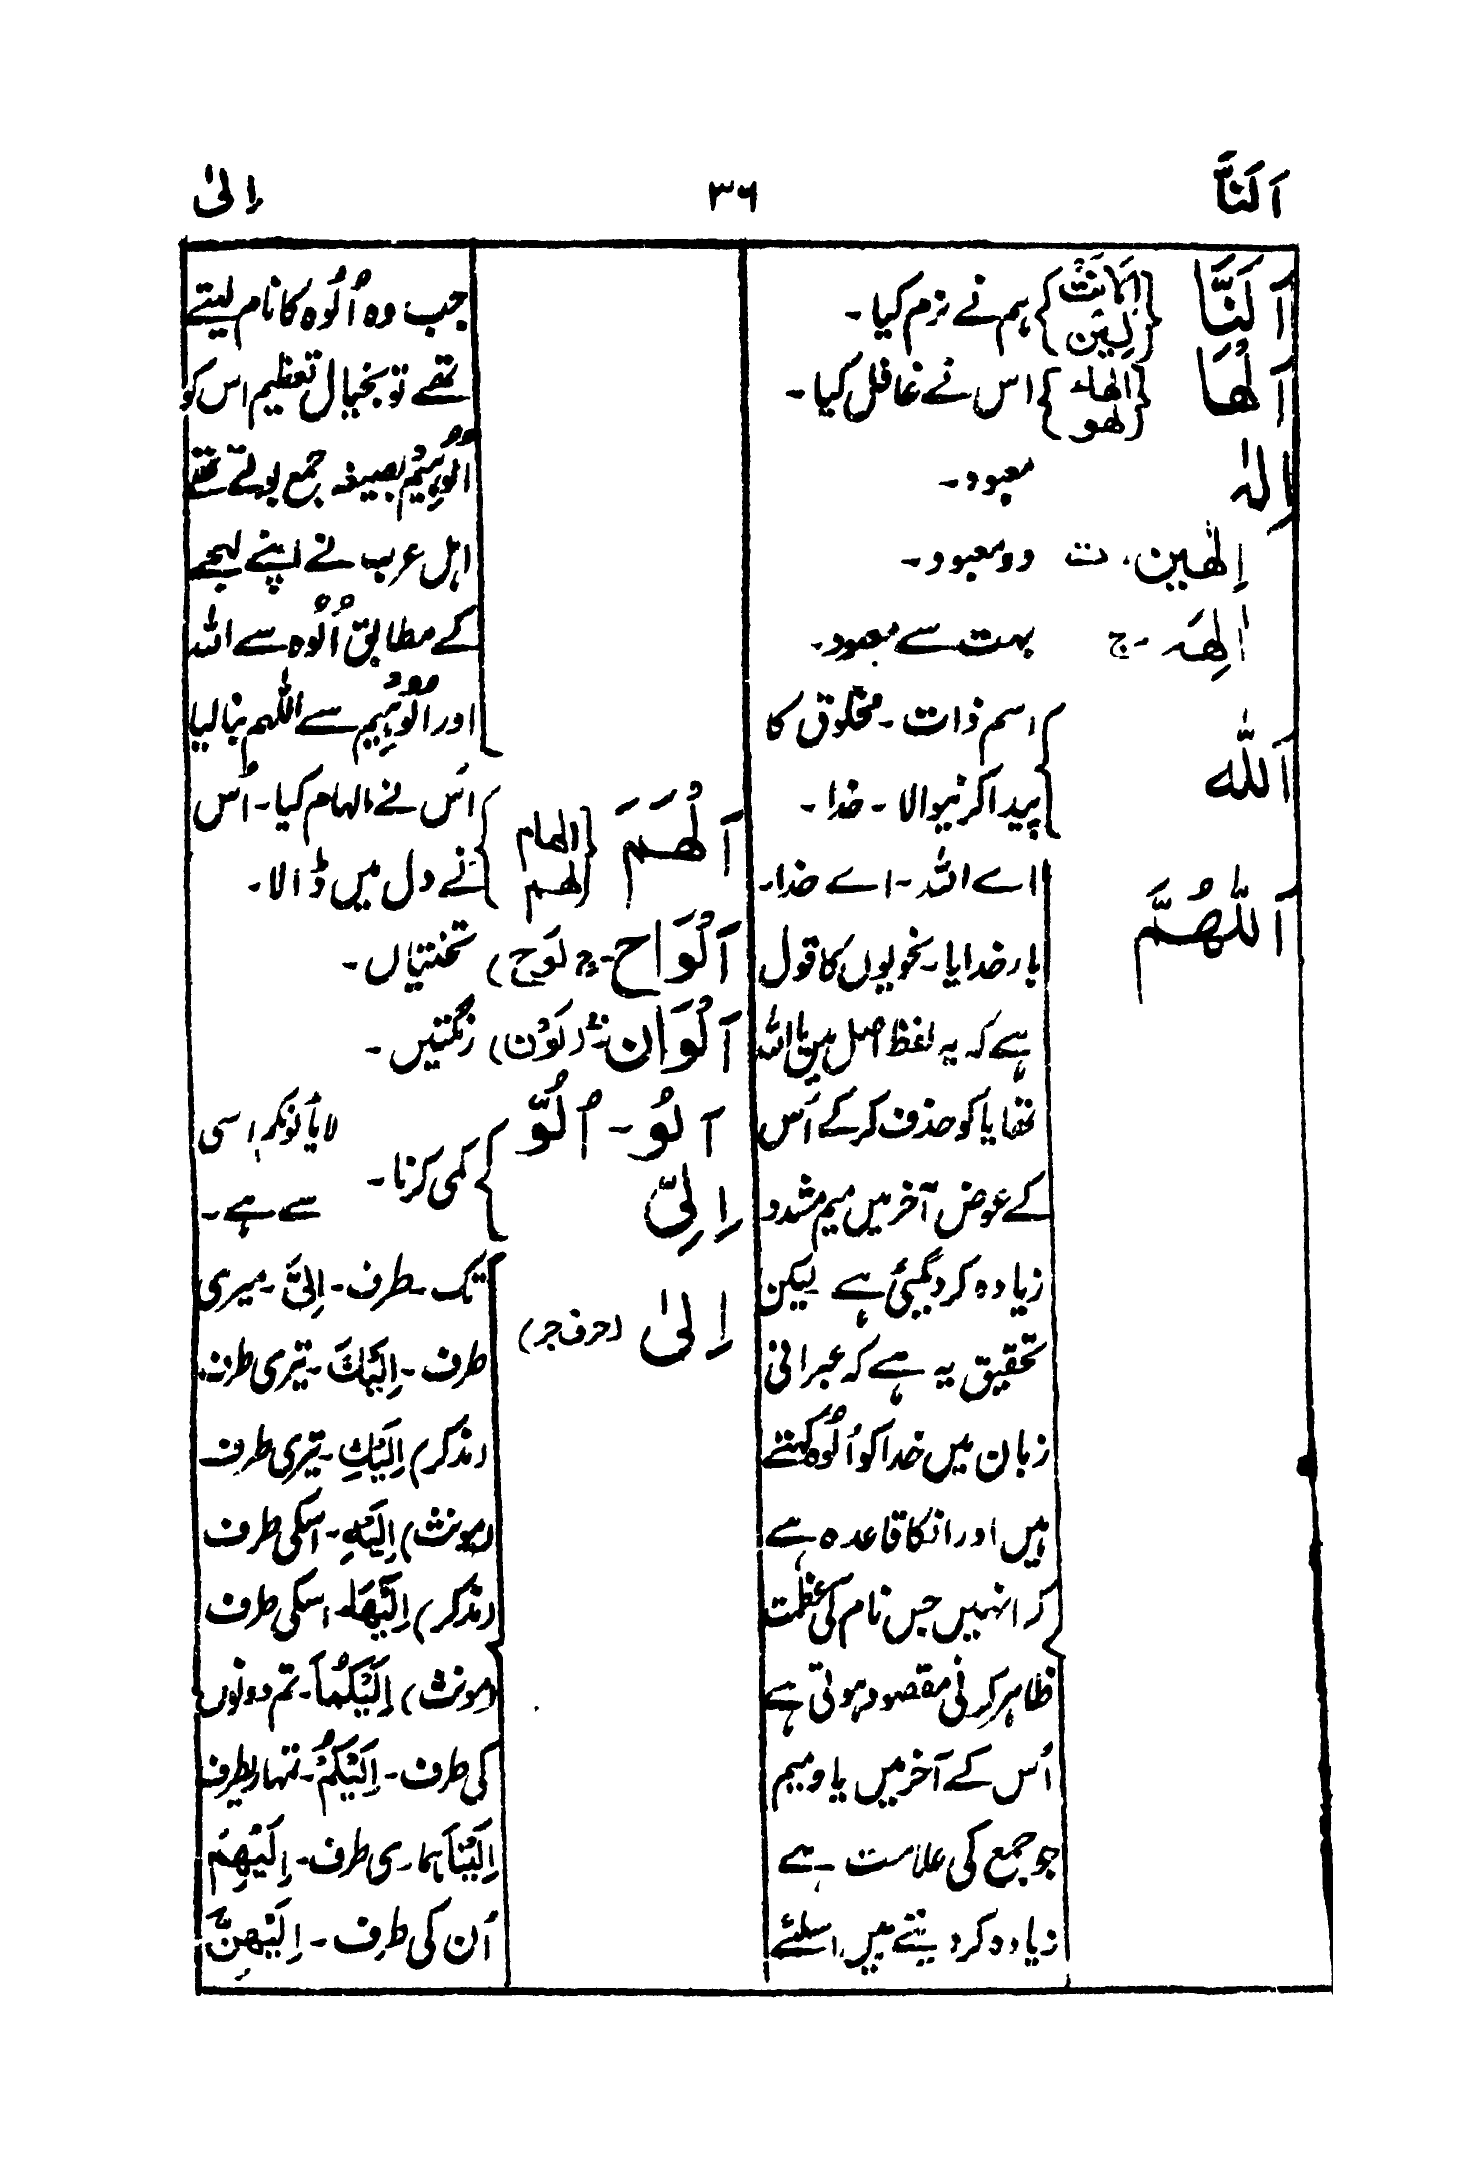 اَلَنَّا
۳۶
اِلیٰ
اَلَنَّا {اِلَانَت لِین} ہم نے نرم کیا۔
اَلْھَا {الھاء لھو} اس نے غافل کیا۔
اِلٰہ معبود۔
اِلٰھین۔ ت دو معبود۔
اٰلِھَہ ۔ ج بہت سے معبود۔
اَللّٰہ اسم ذات ۔ مخلوق کا
پیدا کرنیوالا ۔ خدا ۔
اَللّٰھُمَّ اے اللہ ۔ اے خدا۔
بار خدایا۔ نحویوں کا قول
ہے کہ یہ لفظ اصل میں یا اللہ
تھا یا کو حذف کر کے اُس
کے عوض آخر میں میم مشدد
زیادہ کر دیگئی ہے لیکن
تحقیق یہ ہے کہ عبرانی
زبان میں خدا کو اُلُوہ کہتے
ہیں اور انکا قاعدہ ہے
کہ انہیں جس نام کی عظمت
ظاہر کرنی مقصود ہوتی ہے
اُس کے آخر میں یا و میم
جو جمع کی علامت ہے
زیادہ کر دیتے ہیں۔ اسلئے
جب وہ اُلُوہ کا نام لیتے
تھے تو بخیال تعظیم اس کو
اُلُوہِیْم بصیغہ جمع بولتے تھے
اہل عرب نے اپنے لہجے
کے مطابق اُلُوہ سے اللہ
اور اُلُوہِیْم سے اللّٰہم بنا لیا
اَلْھَمَ {الھام لھم} اس نے الہام کیا۔ اُس
نے دل میں ڈالا۔
اَلْوَاح ۔ ج (لَوح) تختیاں۔
اَلْوَان ۔ ج (لَوْن) رنگتیں۔
اَلُو ۔ اُلُوّ کمی کرنا۔ لا یألونکم اسی
اِلِیّ سے ہے۔
اِلیٰ (حرف جر) تک ۔ طرف ۔ اِلَیَّ ۔ میری
طرف ۔ اِلَیْکَ ۔ تیری طرف
(مذکر) اِلَیْکِ ۔ تیری طرف
(مونث) اِلَیْہِ ۔ اسکی طرف
(مذکر) اِلَیْھَا ۔ اسکی طرف
(مونث) اِلَیْکُمَا ۔ تم دونوں
کی طرف ۔ اِلَیْکُمْ ۔ تمہاری طرف
اِلَیْنَا ہماری طرف ۔ اِلَیْھِمْ
اُن کی طرف ۔ اِلَیْھِنَّ